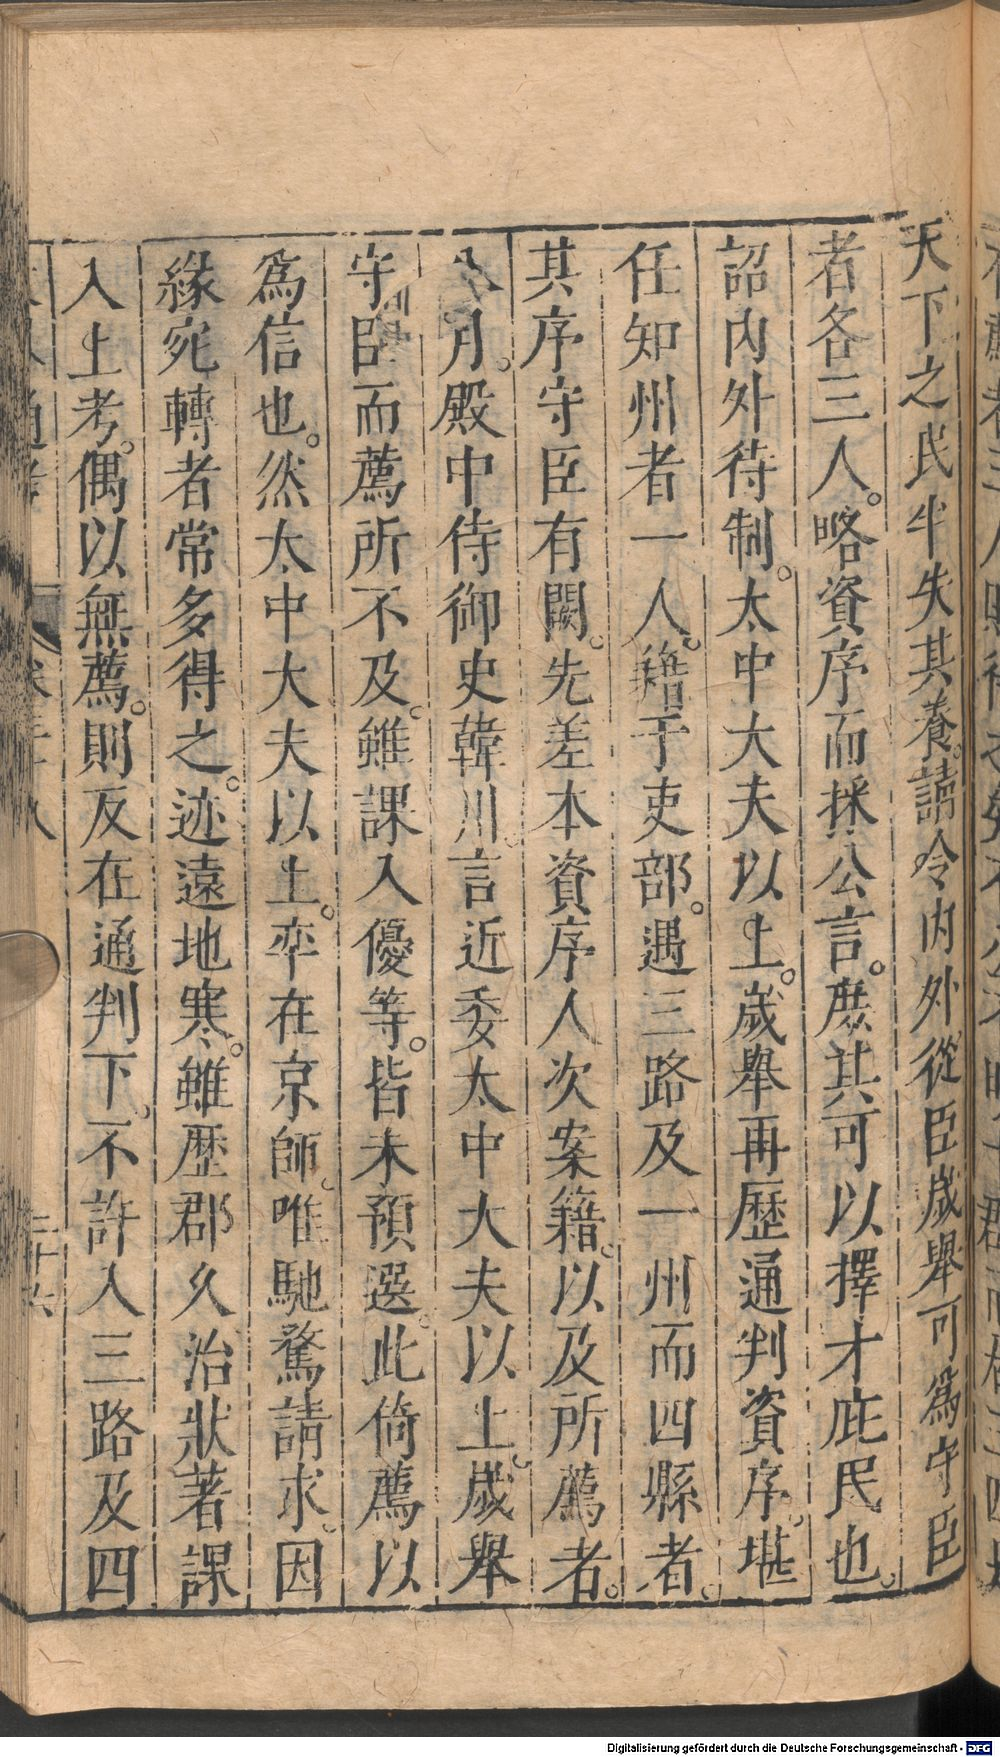 天下之民半失其養。請令內外從臣歲舉可爲守臣
者各三人。略資序而採公言。庶其可以擇才庇民也。
詔內外待制。太中大夫以上。歲舉再歷通判資序。堪
任知州者一人。籍于吏部。遇三路及一州而四縣者。
其序守臣有闕。先差本資序人次案籍。以及所薦者。
八月。殿中侍御史韓川。言近委太中大夫以上。歲舉
守臣而薦所不及。雖課入優等。皆未預選。此倚薦以
爲信也。然太中大夫以上。率在京師。唯馳騖請求。因
緣宛轉者常多得之。迹遠地寒。雖歷郡久治狀著課
入上考。偶以無薦。則反在通判下。不許入三路及四
Digitalisierung gefördert durch die Deutsche Forschungsgemeinschaft - DFG